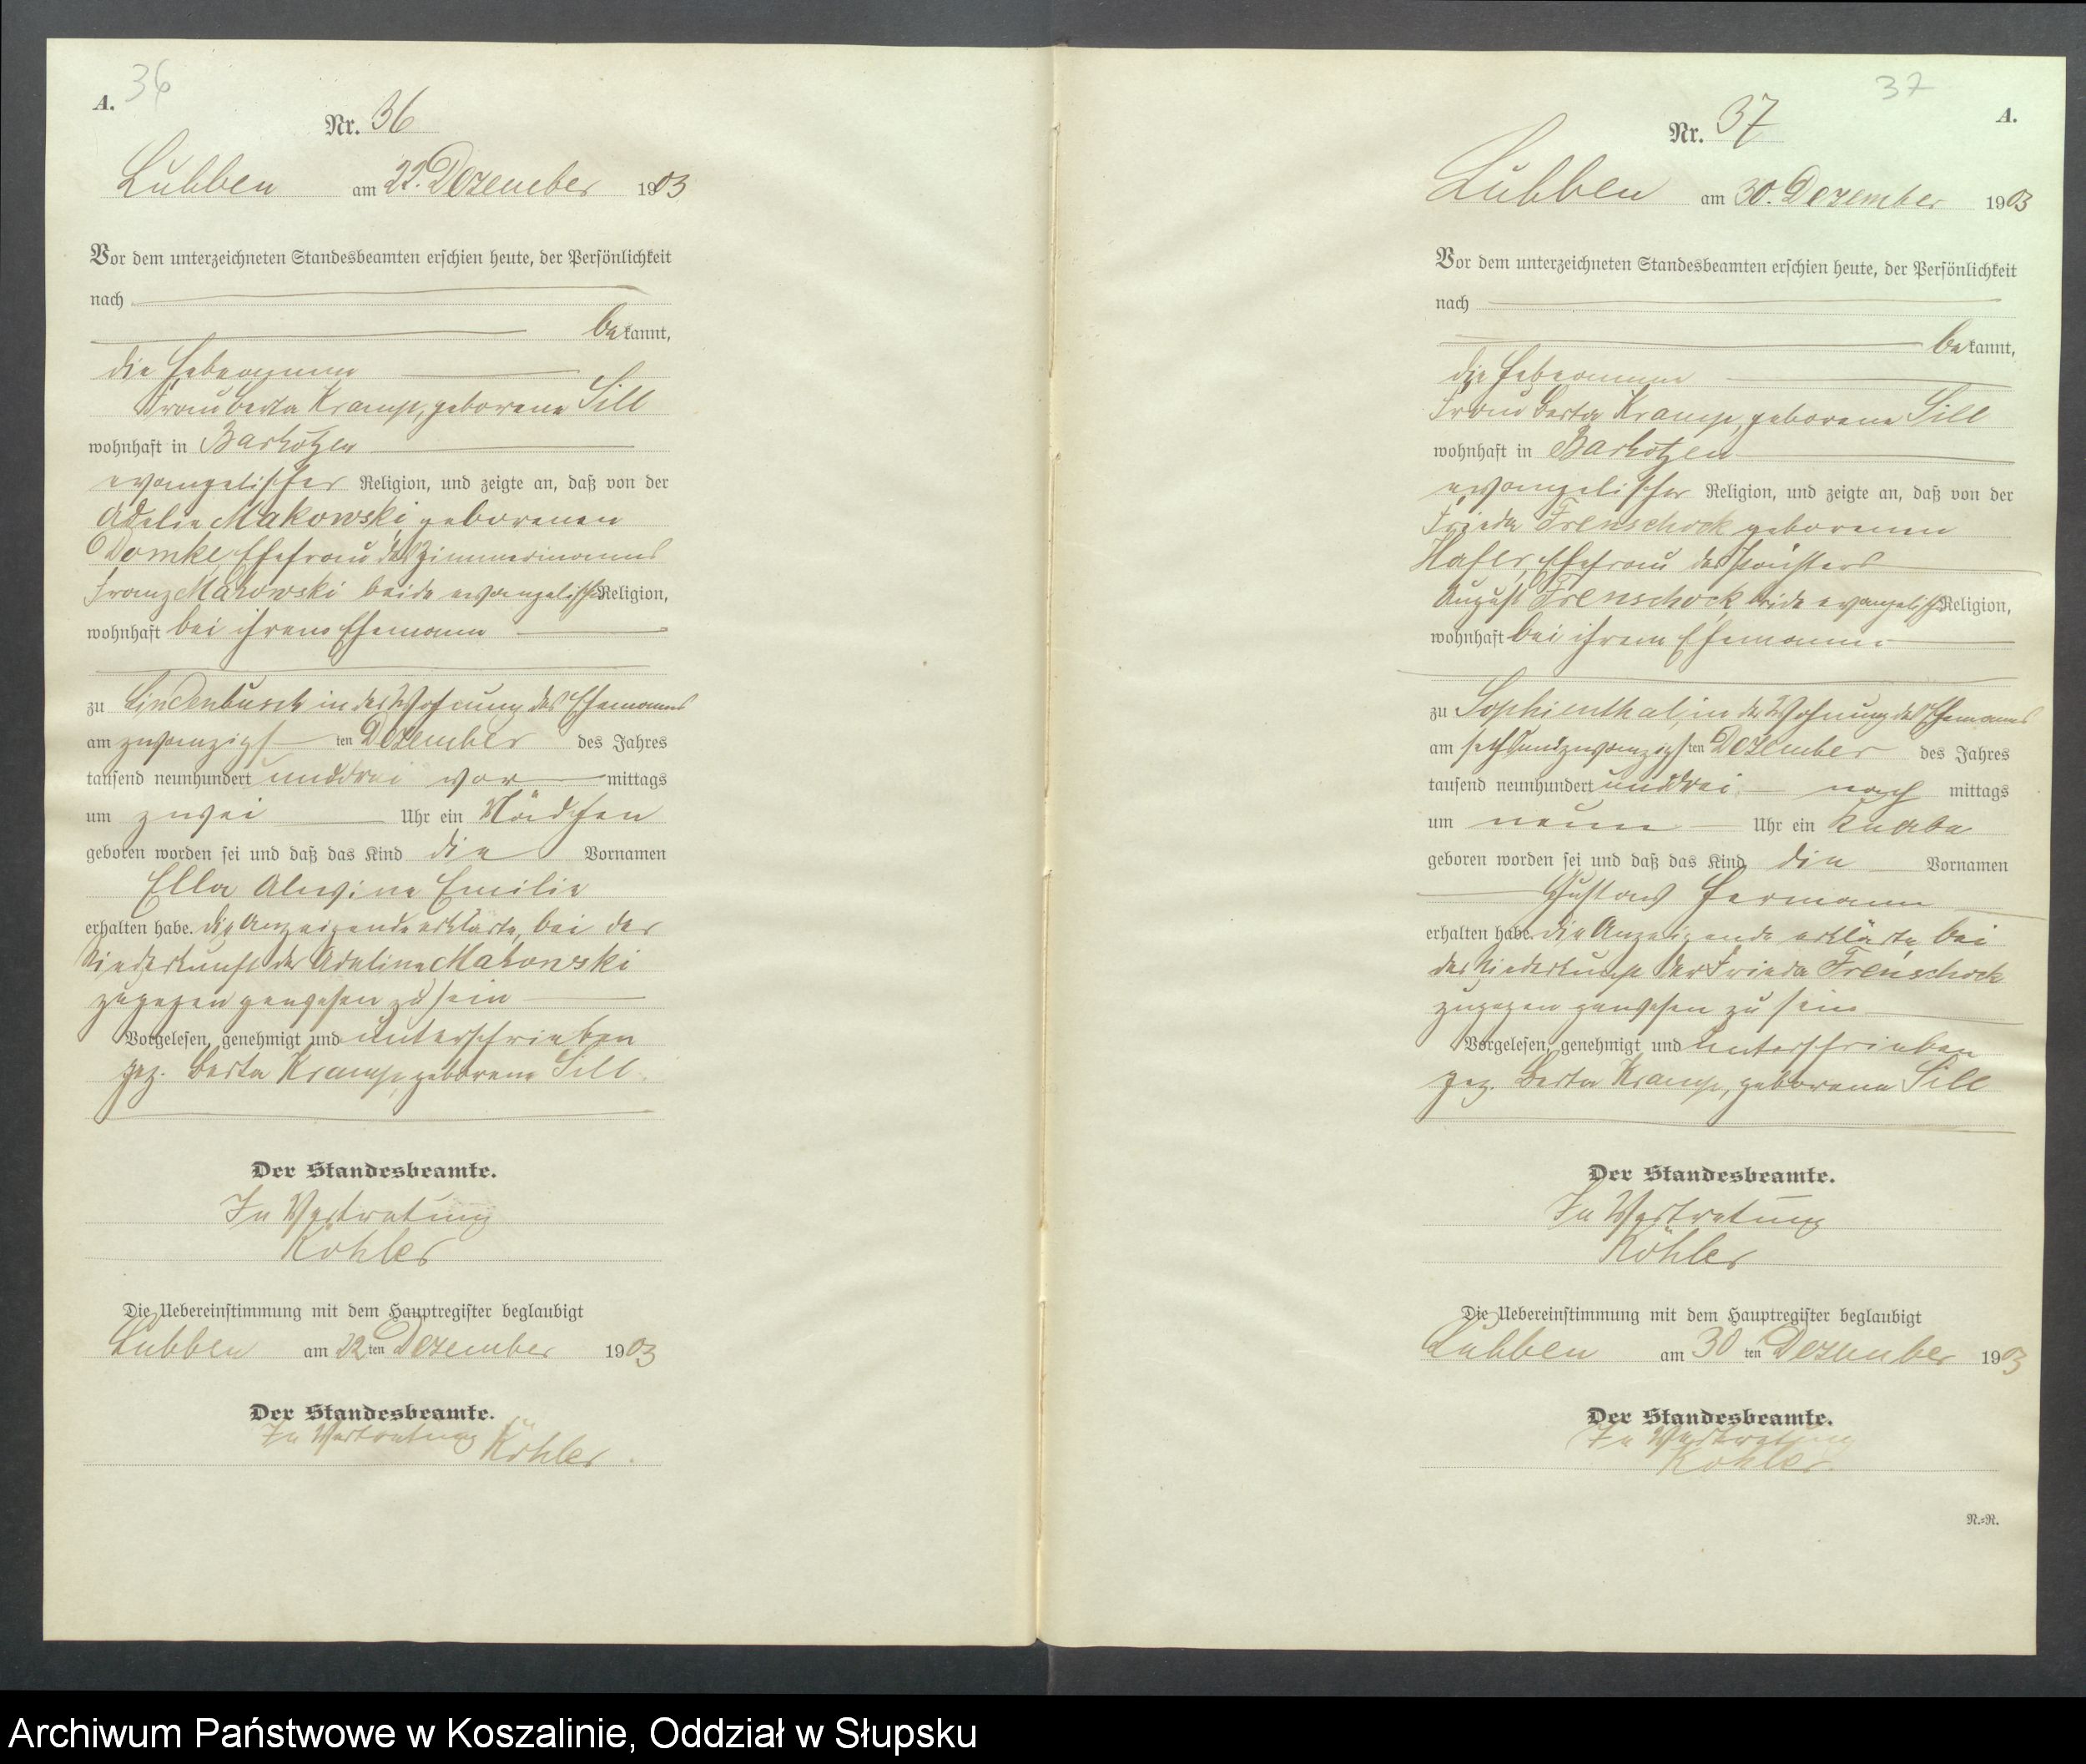 A.
36
Nr. 36
Lübben am 22. Dezember 1903
Vor dem unterzeichneten Standesbeamten erschien heute, der Persönlichkeit
nach
bekannt,
die Hebeamme
Frau Berta Kramp, geborene Sill
wohnhaft in Barkotzen
evangelischer Religion, und zeigte an, daß von der
Makowski, geborenen
Domke, Ehefrau des Zimmermanns
Franz Makowski beide evangelischer Religion,
wohnhaft bei ihrem Ehemann
zu Lindenbusch in der Wohnung des Ehemanns
am zwanzigsten Dezember des Jahres
tausend neunhundert unddrei vormittags
um zwei Uhr ein Mädchen
geboren worden sei und daß das Kind die Vornamen
Ella Alwine Emilie
erhalten habe. die Anzeigende erklärte, bei der
Niederkunft der Makowski
zugegen gewesen zu sein
Vorgelesen, genehmigt und unterschrieben
gez. Berta Kramp, geborene Sill.
Der Standesbeamte.
In Vertretung
Köhler
Die Uebereinstimmung mit dem Hauptregister beglaubigt
Lübben am 22ten Dezember 1903
Der Standesbeamte.
In Vertretung Köhler.
37
A.
Nr. 37
Lübben am 30. Dezember 1903
Vor dem unterzeichneten Standesbeamten erschien heute, der Persönlichkeit
nach
bekannt,
die Hebeamme
Frau Berta Kramp, geborene Sill
wohnhaft in Barkotzen
evangelischer Religion, und zeigte an, daß von der
Frieda Frenschock geborenen
Ehefrau des
August Frenschock, beide evangelischer Religion,
wohnhaft bei ihrem Ehemann
zu Sophienthal, in der Wohnung des Ehemanns
am sechsundzwanzigsten Dezember des Jahres
tausend neunhundert unddrei nachmittags
um neun Uhr ein Knabe
geboren worden sei und daß das Kind die Vornamen
Gustav Hermann
erhalten habe. die Anzeigende erklärte, bei
der Niederkunft der Frieda Frenschock
zugegen gewesen zu sein
Vorgelesen, genehmigt und unterschrieben
gez. Berta Kramp, geborene Sill
Der Standesbeamte.
In Vertretung
Köhler
Die Uebereinstimmung mit dem Hauptregister beglaubigt
Lübben am 30ten Dezember 1903
Der Standesbeamte.
In Vertretung
Köhler.
N.=R.
Archiwum Państwowe w Koszalinie, Oddział w Słupsku